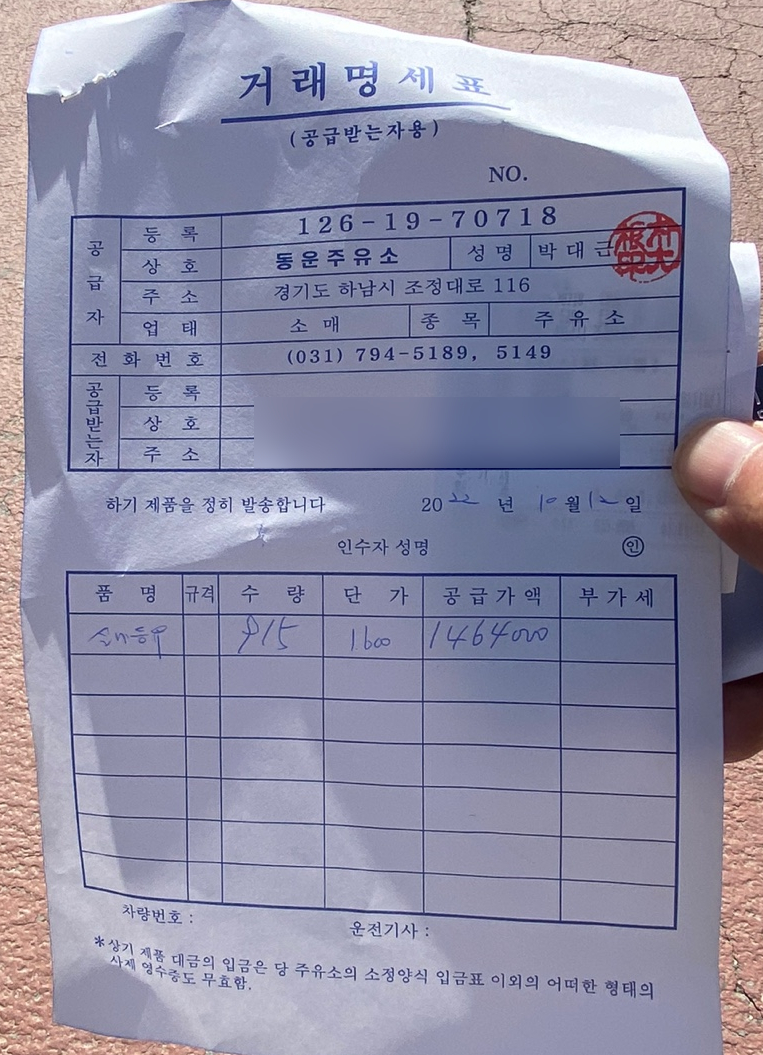 거래명세표
(공급받는자용)
NO.
공급자 등록 126-19-70718
상호 동운주유소 성명 박대금
주소 경기도 하남시 조정대로 116
업태 소매 종목 주유소
전화번호 (031) 794-5189, 5149
공급받는자 등록
상호
주소
하기 제품을 정히 발송합니다 2022년 10월 12일
인수자 성명 ㊞
품명 규격 수량 단가 공급가액 부가세
실내등유 915 1.600 1464000
차량번호 :
운전기사 :
*상기 제품 대금의 입금은 당 주유소의 소정양식 입금표 이외의 어떠한 형태의
사제 영수증도 무효함.